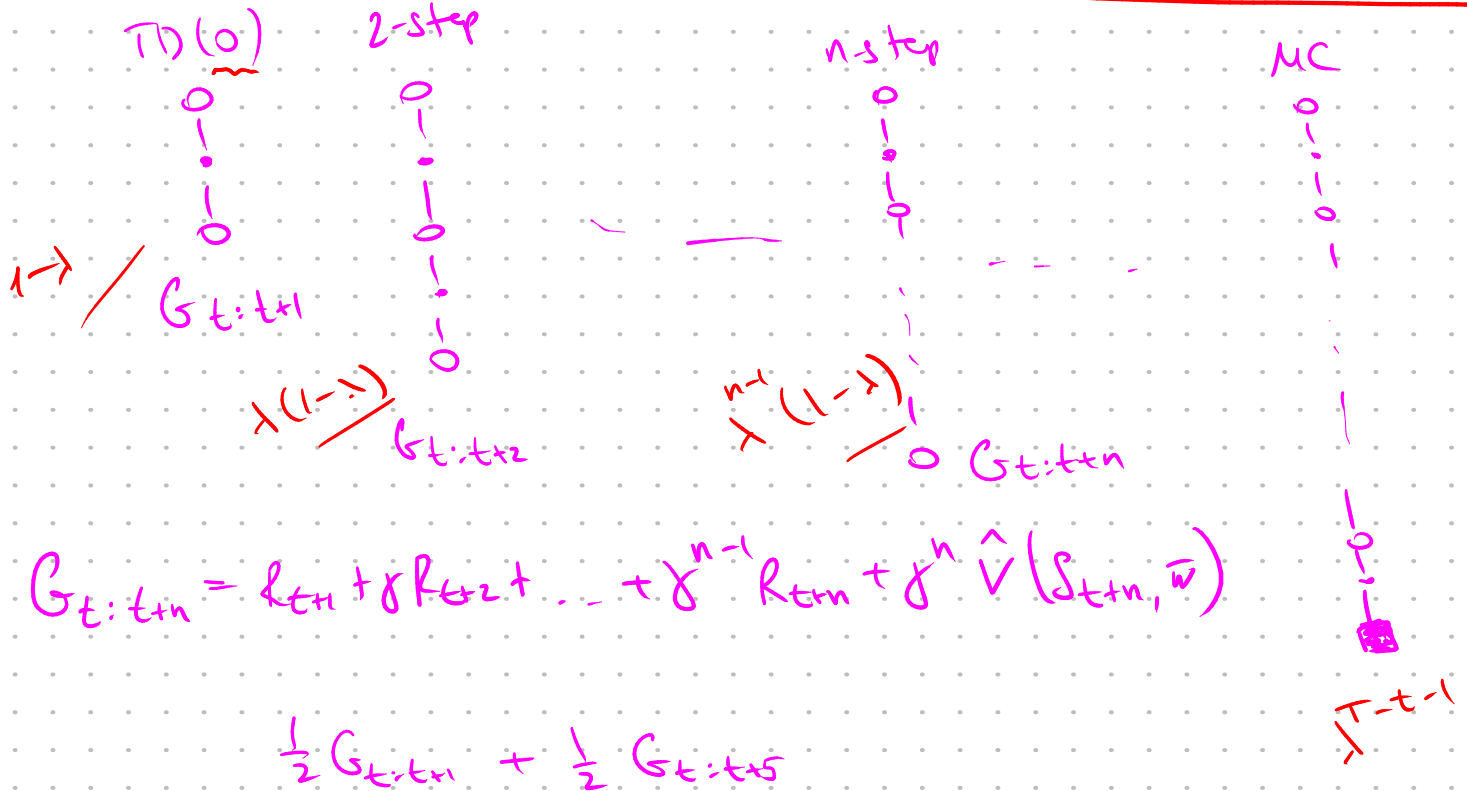 TD(0) 2-step n-step MC
1-λ G_{t:t+1}
λ(1-λ) G_{t:t+2}
λ^{n-1}(1-λ) G_{t:t+n}
G_{t:t+n} = R_{t+1} + γR_{t+2} + ... + γ^{n-1} R_{t+n} + γ^n V̂(S_{t+n}, w̄)
λ^{T-t-1}
½ G_{t:t+1} + ½ G_{t:t+5}